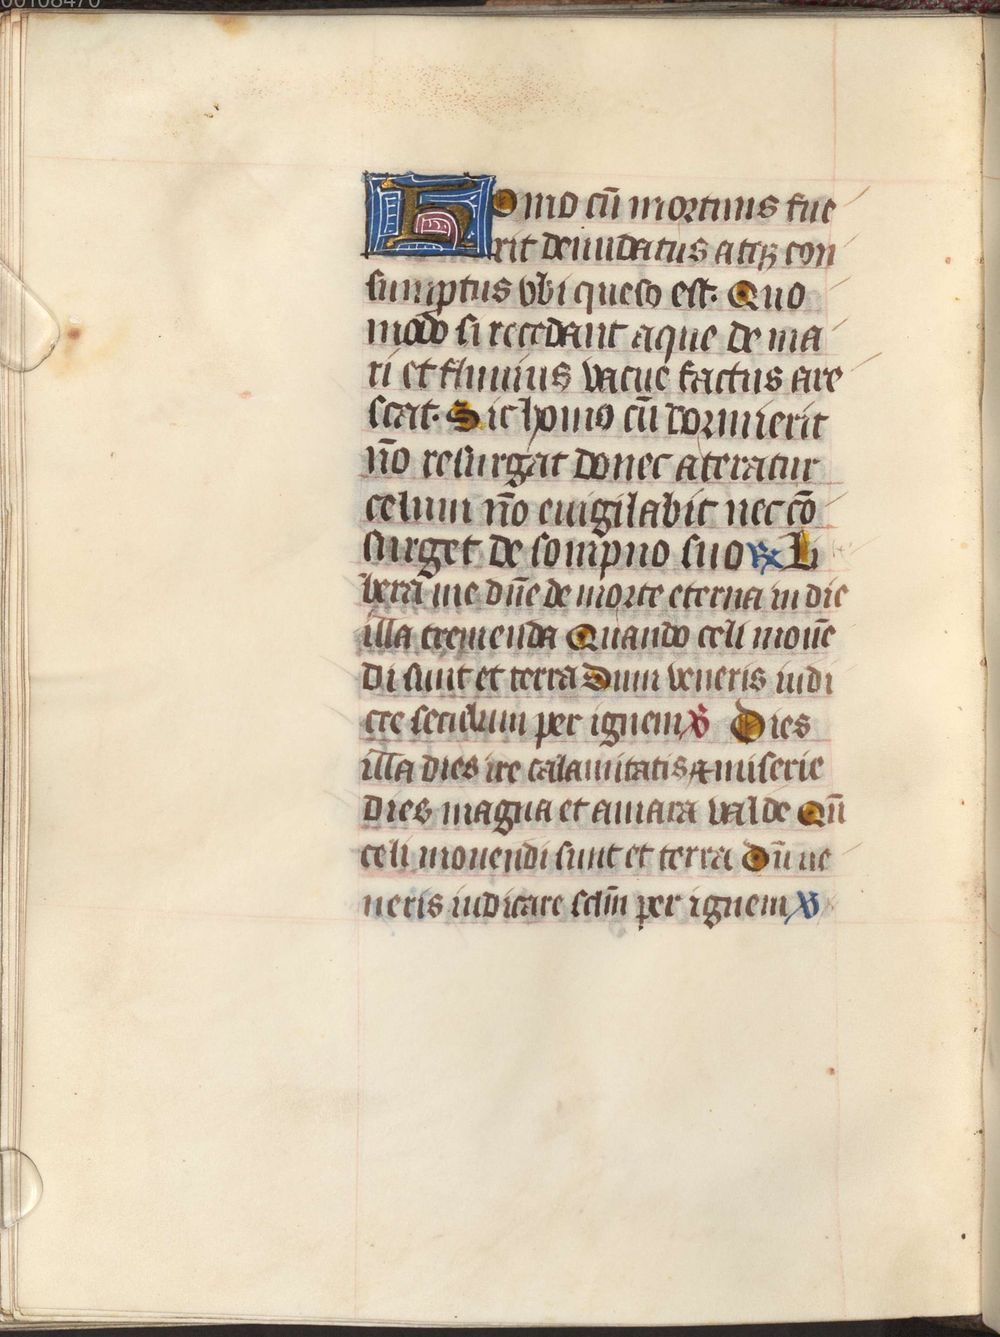 00108470
Homo cū mortuus fue
rit denudatus atqꝫ con
sumptus vbi queso est. Quo
modo si recedant aque de ma
ri et fluuius vacue factus are
scat. Sic homo cū dormierit
nō resurgat donec ateratur
celum nō euigilabit nec cō
surget de sompno suo ℟ Li
bera me dn̄e de morte eterna in die
illa tremenda Quando celi mouē
di sunt et terra Dum veneris iudi
cre seculum per ignem ℣ Dies
illa dies ire calamitatis ⁊ miserie
dies magna et amara valde Qn̄
celi mouendi sunt et terra Dū ue
neris iudicare sclm̄ per ignem ℣